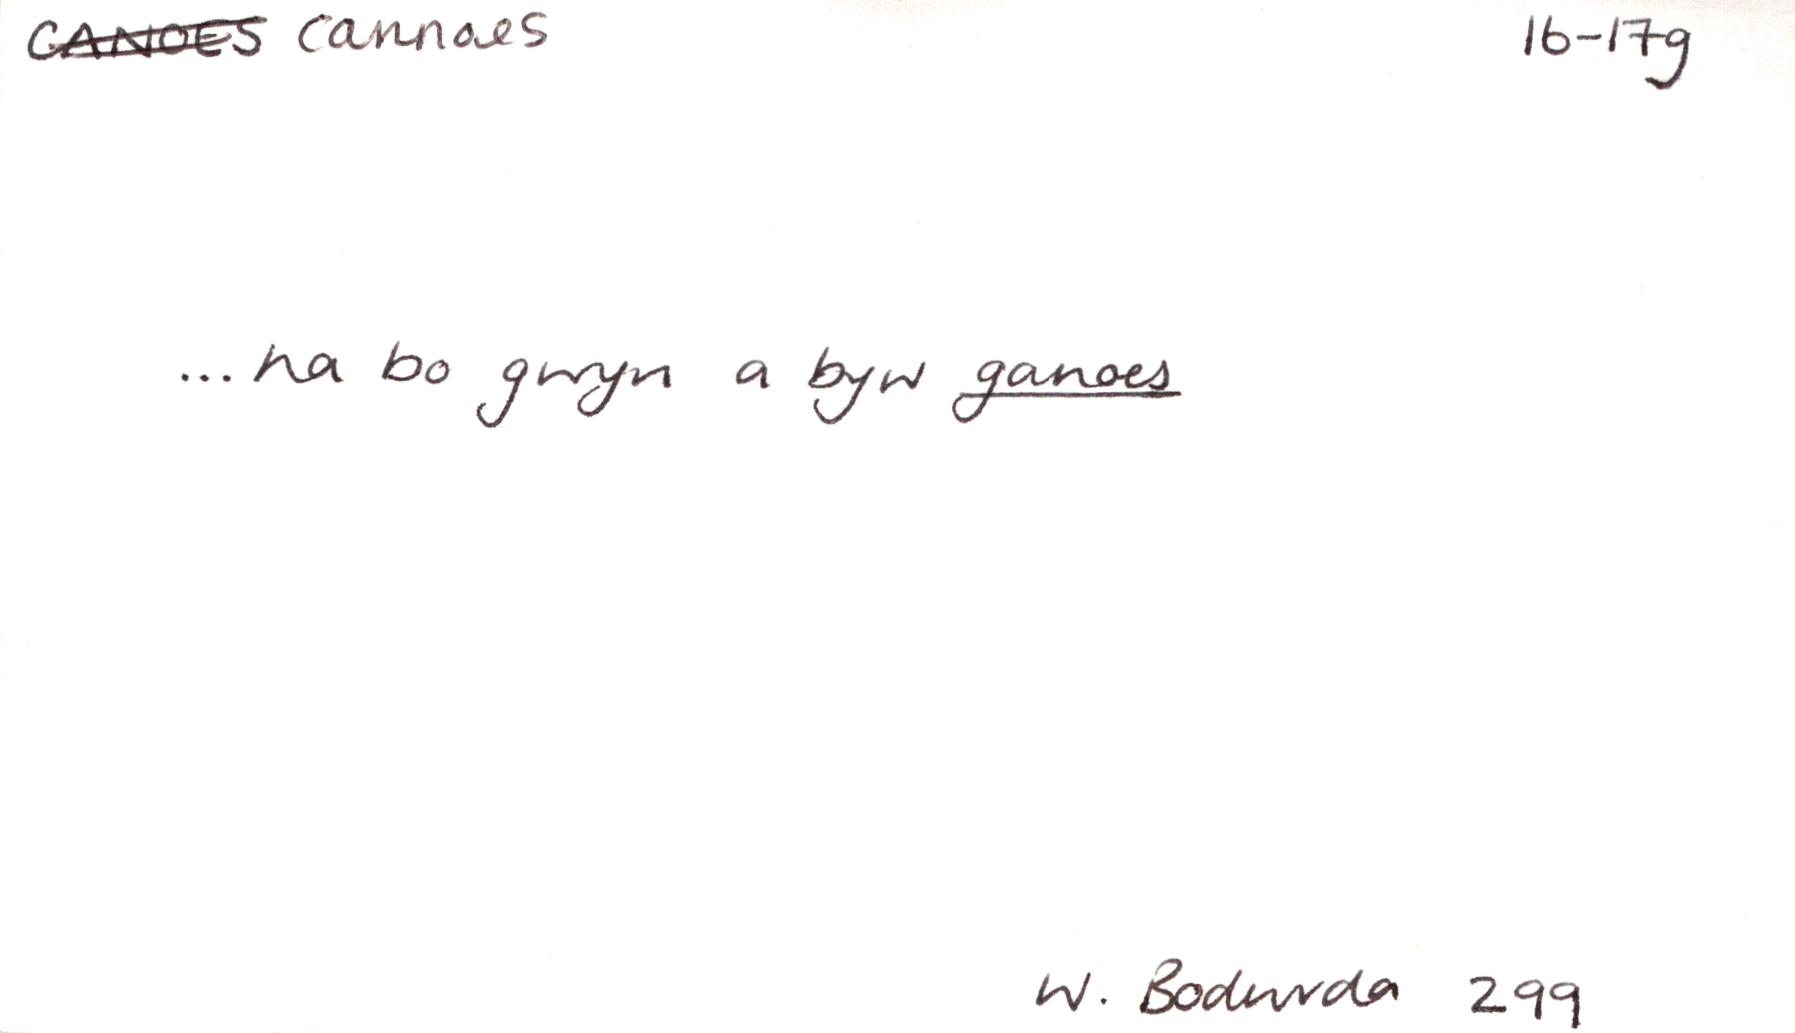 CANOES cannoes 16-17g
...na bo gwyn a byw ganoes
W. Bodwrda 299